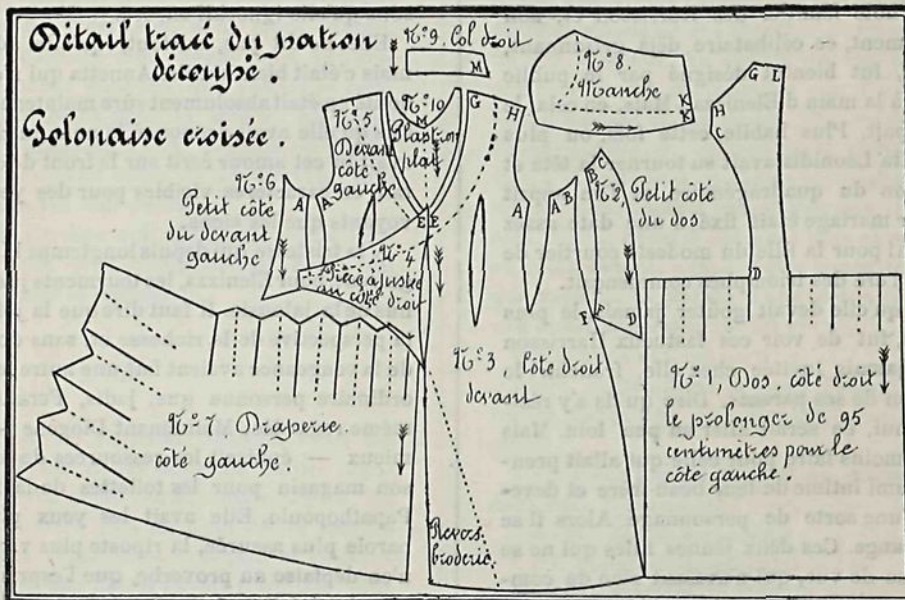 Détail tracé du patron
découpé.
Polonaise croisée.
N° 9. Col droit
M
N° 8.
Manche
H
K
N° 10
M
Plastron
plat
N° 5
Devant
côté
gauche
G
H
G
L
H
N° 6
Petit côté
du devant
gauche
A
A
E
E
A
A
B
B
C
N° 2. Petit côté
du dos
N° 4.
ajusté
du côté droit
D
D
N° 3 Côté droit
devant
N° 1. Dos, côté droit
le prolonger de 95
centimètres pour le
côté gauche.
N° 7. Draperie
côté gauche.
Revers.
broderie